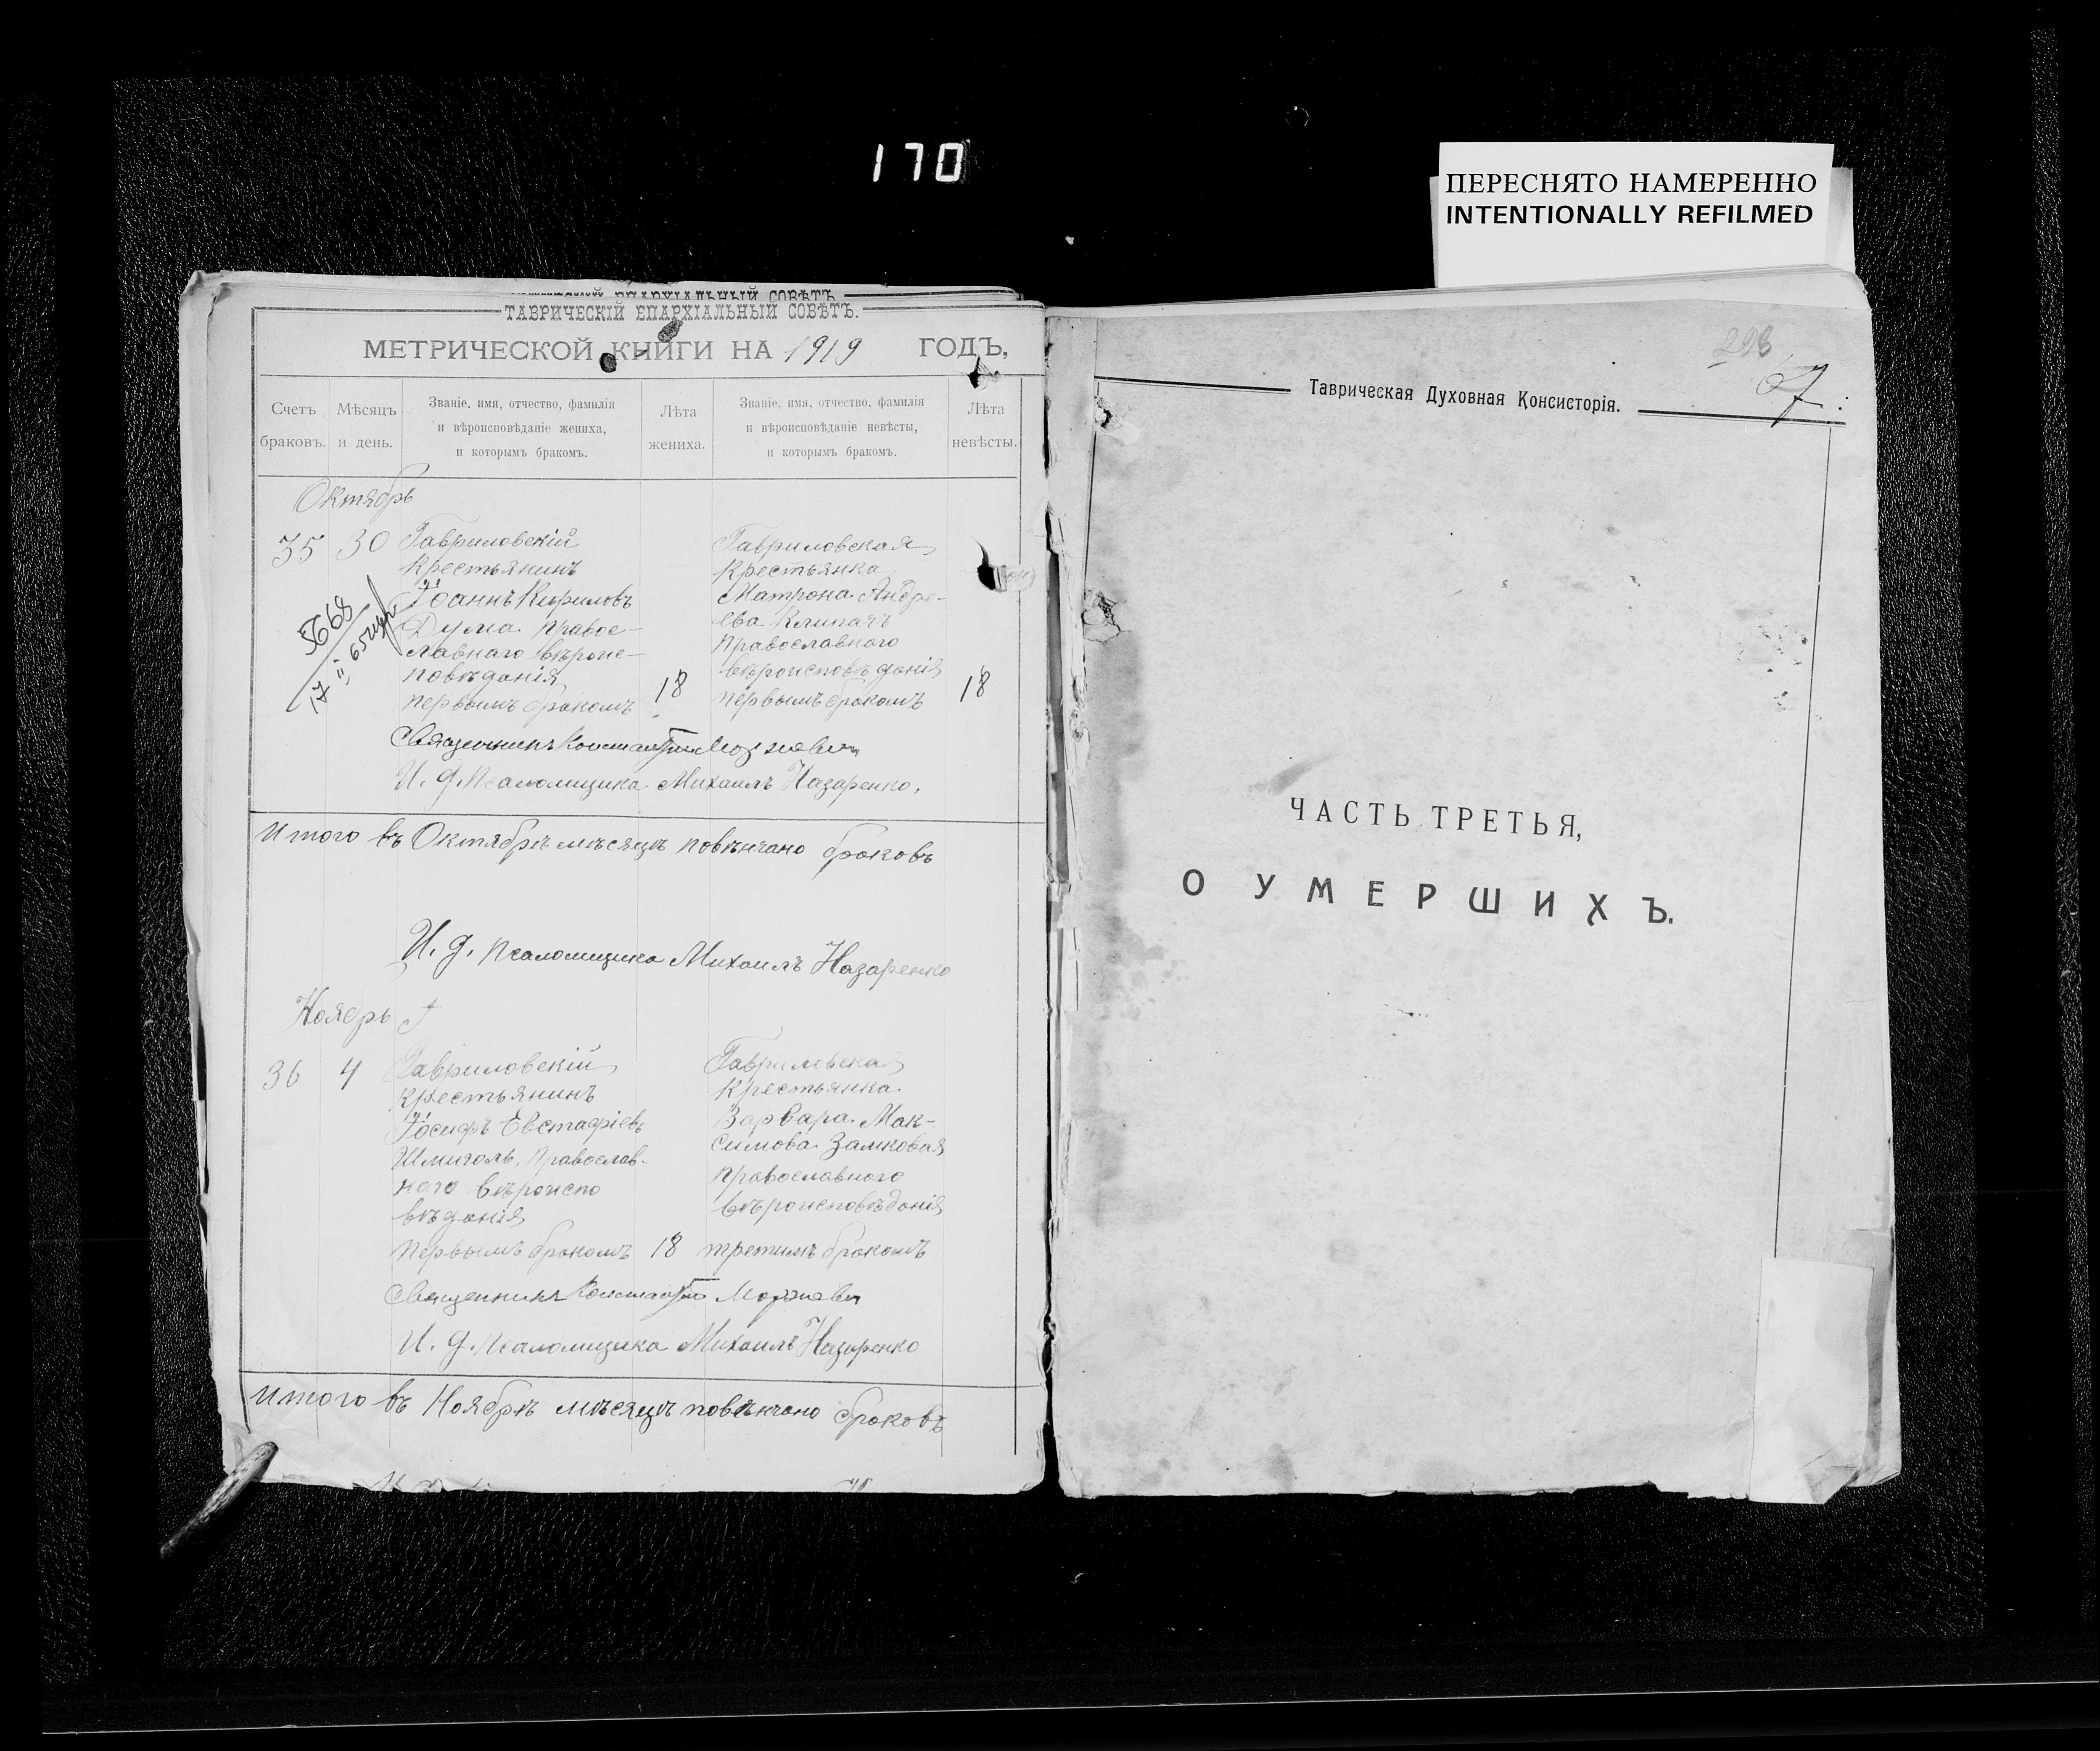 170
ПЕРЕСНЯТО НАМЕРЕННО
INTENTIONALLY REFILMED
ЕПАРХІАЛЬНЫЙ СОВѢТЪ
ТАВРИЧЕСКІЙ ЕПАРХІАЛЬНЫЙ СОВѢТЪ.
МЕТРИЧЕСКОЙ КНИГИ НА 1919 ГОДЪ,
Счетъ браковъ.
Мѣсяцъ и день.
Званіе, имя, отчество, фамилія
и вѣроисповѣданіе жениха,
и которымъ бракомъ.
Лѣта жениха.
Званіе, имя, отчество, фамилія
и вѣроисповѣданіе невѣсты,
и которымъ бракомъ.
Лѣта невѣсты.
Октябрь
35 30
Гавриловскій
Крестьянинъ
Іоаннъ Кириловъ
Дума Правос-
лавнаго вѣроис-
повѣданія
первымъ бракомъ
18
Гавриловская
Крестьянка
Матрона Андре-
ева
Православного
вѣроисповѣданія
первымъ бракомъ
18
5668
17 II 65
Священникъ Константин
И. д. Псаломщика Михаилъ Назаренко.
Итого въ Октябрѣ мѣсяцѣ повѣнчано браковъ
И. д. Псаломщика Михаилъ Назаренко
Ноябрь
36 4
Гавриловскій
Крестьянинъ
Іосифъ Евстафіевъ
Шмиголь, Православ-
ного вѣроиспо
вѣданія
первымъ бракомъ
18
Гавриловская
Крестьянка
Варвара Мак-
симова Замковая
Православного
вѣроисповѣданія
третимъ бракомъ
Священникъ Константин
И. д. Псаломщика Михаилъ Назаренко
Итого въ Ноябрѣ мѣсяцѣ повѣнчано браковъ
298
Таврическая Духовная Консисторія.
ЧАСТЬ ТРЕТЬЯ,
О УМЕРШИХЪ.